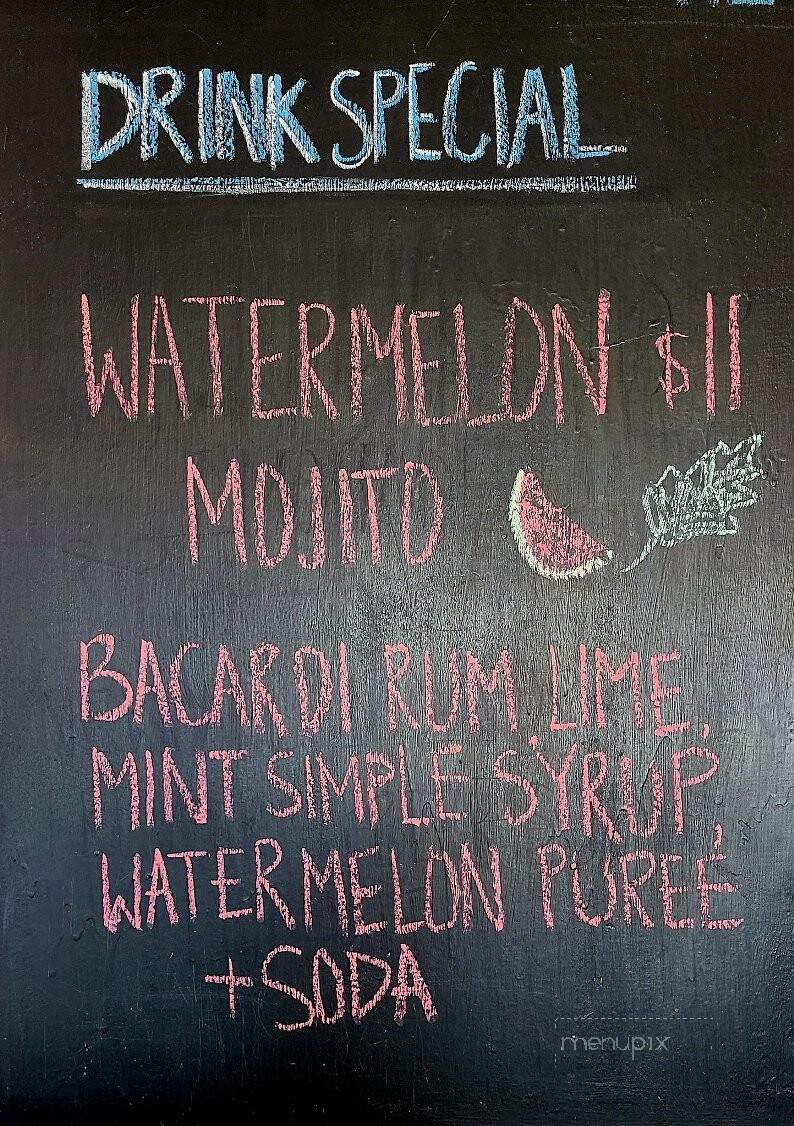 DRINK SPECIAL
WATERMELON $11
MOJITO
BACARDI RUM, LIME,
MINT SIMPLE SYRUP,
WATERMELON PUREÉ
+ SODA
menupix